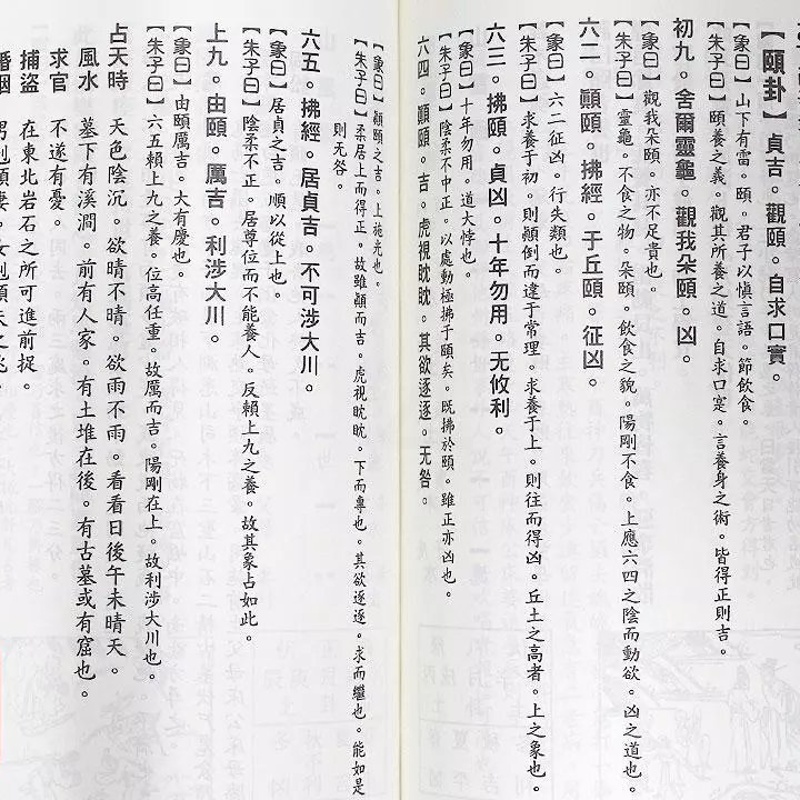 【頤卦】貞吉。觀頤。自求口實。
【象曰】山下有雷。頤。君子以慎言語。節飲食。
【朱子曰】頤養之義。觀其所養之道。自求口寔。言養身之術。皆得正則吉。
初九。舍爾靈龜。觀我朵頤。凶。
【象曰】觀我朵頤。亦不足貴也。
【朱子曰】靈龜。不食之物。朵頤。飲食之貌。陽剛不食。上應六四之陰而動欲。凶之道也。
六二。顚頤。拂經。于丘頤。征凶。
【象曰】六二征凶。行失類也。
【朱子曰】求養于初。則顛倒而違于常理。求養于上。則往而得凶。丘土之高者。上之象也。
六三。拂頤。貞凶。十年勿用。无攸利。
【象曰】十年勿用。道大悖也。
【朱子曰】陰柔不中正。以處動極拂于頤矣。既拂於頤。雖正亦凶也。
六四。顚頤。吉。虎視眈眈。其欲逐逐。无咎。
【象曰】顛頤之吉。上施光也。
【朱子曰】柔居上而得正。故雖顛而吉。虎視眈眈。下而專也。其欲逐逐。求而繼也。能如是
則无咎。
六五。拂經。居貞吉。不可涉大川。
【象曰】居貞之吉。順以從上也。
【朱子曰】陰柔不正。居尊位而不能養人。反賴上九之養。故其象占如此。
上九。由頤。厲吉。利涉大川。
【象曰】由頤厲吉。大有慶也。
【朱子曰】六五賴上九之養。位高任重。故厲而吉。陽剛在上。故利涉大川也。
占天時 天色陰沉。欲晴不晴。欲雨不雨。看看日後午未晴天。
風水 墓下有溪澗。前有人家。有土堆在後。有古墓或有窟也。
求官 不遂有憂。
捕盜 在東北岩石之所可進前捉。